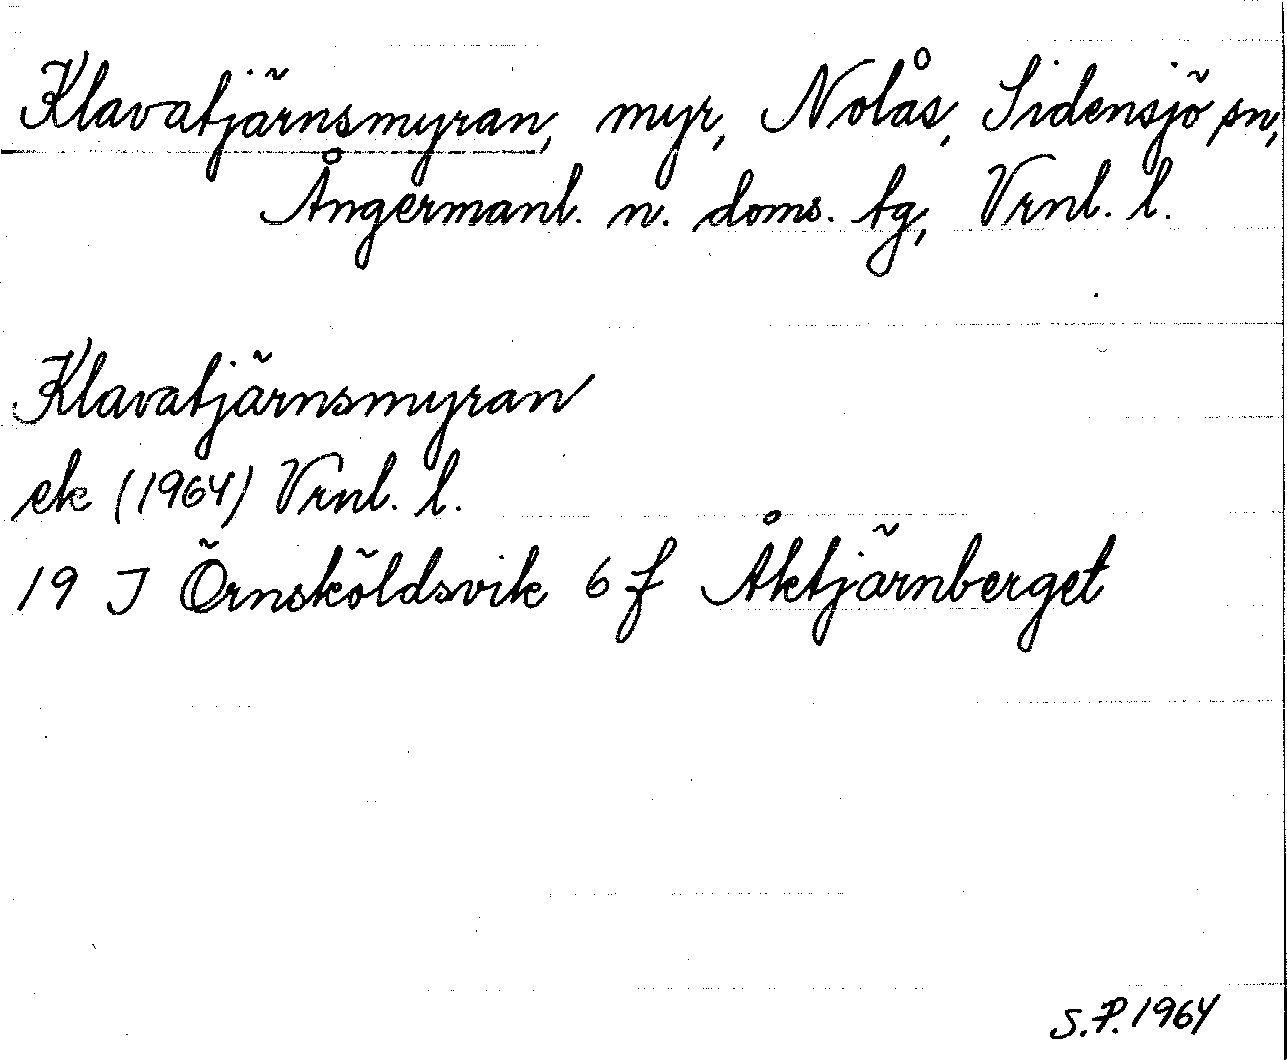 Klavatjärnsmyran, myr, Nolås, Sidensjö sn,
Ångermanl. n. doms. tg, Vrnl. l.
Klavatjärnsmyran
ek (1964) Vrnl. l.
19 J Örnsköldsvik 6 f Åktjärnberget
S.P. 1964